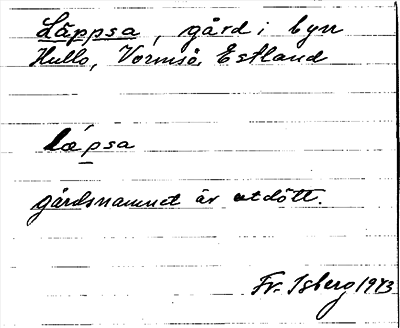 Läppsa, gård i byn
Hullo, Vormsö, Estland
læ´psa
gårdsnamnet är utdött.
Fr. Isberg 1943